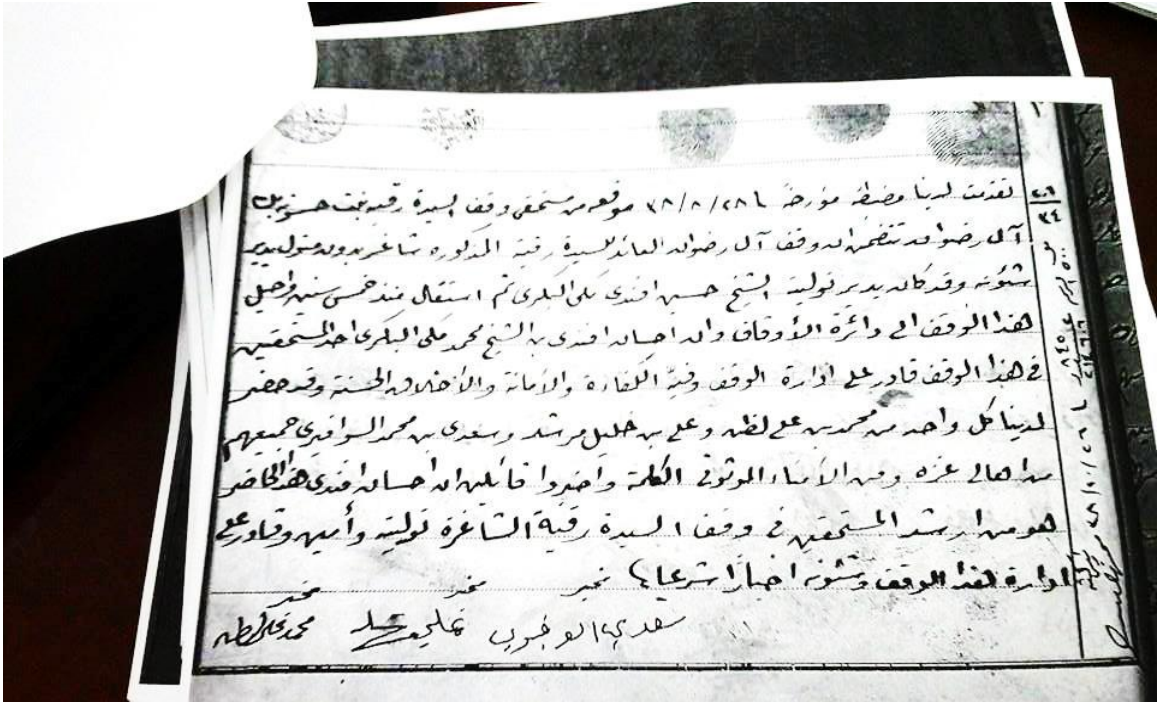 تقدمت لدينا مضبطه مؤرخة ٣٨/٨/٢٨ موقعه من مستحقي وقف السيدة رقيه بنت حسين بك
آل رضوان تتضمن ان وقف آل رضوان العائد للسيدة رقية المذكوره شاغر بدون متول يدير
شئونه وقد كان يدير توليته الشيخ حسين افندي مكي البكري ثم استقال منذ خمس سنين واحيل
هذا الوقف الى دائرة الأوقاف وان احسان افندي بن الشيخ محمد مكي البكري احد المستحقين
في هذا الوقف قادر على ادارة الوقف وفيه الكفاءة والأمانة والأخلاق الحسنة وقد حضر
لدينا كل واحد من محمد بن علي لظن وعلي بن خليل مرشد وسعدي بن محمد السوافيري جميعهم
من اهالي غزه ومن الأمناء الموثوقي الكلمة واخبروا قائلين ان احسان افندي هذا الحاضر
هو من ارشد المستحقين في وقف السيدة رقية الشاغرة توليته وأمين وقادر على
ادارة هذا الوقف وشئونه اخبارًا شرعيا
مخبر مخبر مخبر
محمد علي لظن علي سعدي
٢٠٦
٣٤